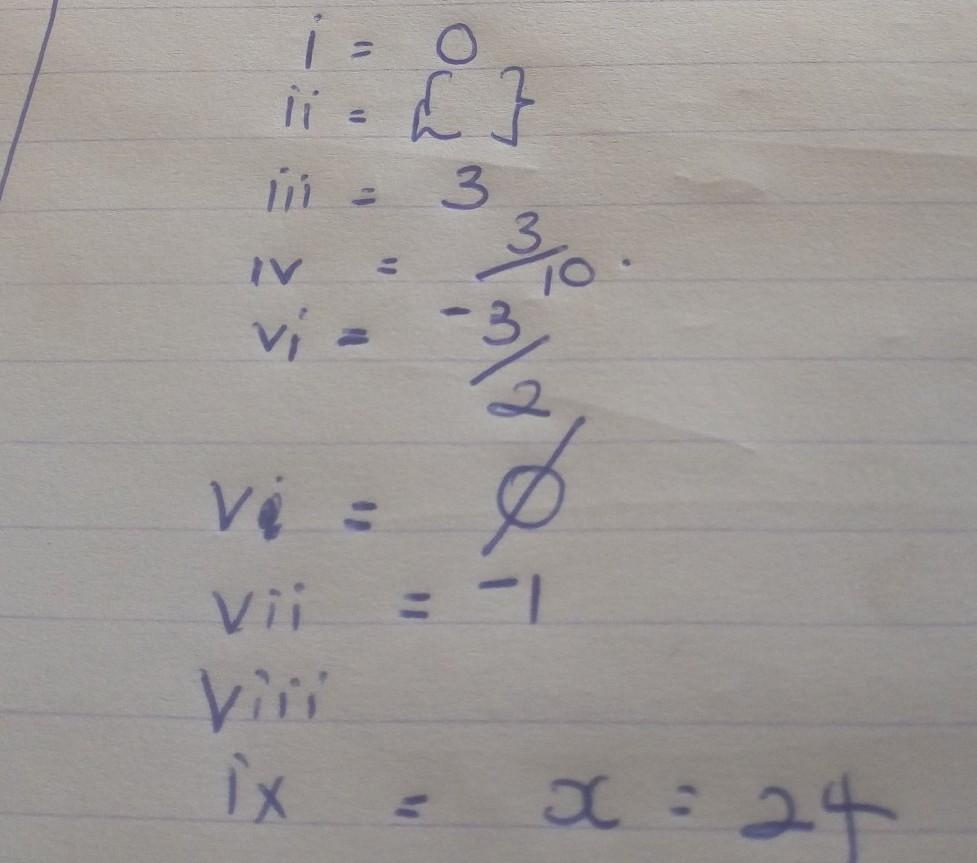 i = 0
ii = { }
iii = 3
iv = 3/10.
vi = -3/2
vi = ∅
vii = -1
viii
ix = x = 24